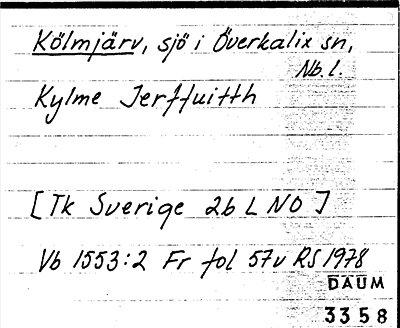 Kölmjärv, sjö i Överkalix sn,
Nb. l.
Kylme Jerffuitth
[Tk Sverige 26 L NO]
Vb 1553:2 Fr fol 57v RS 1978
DAUM
3358